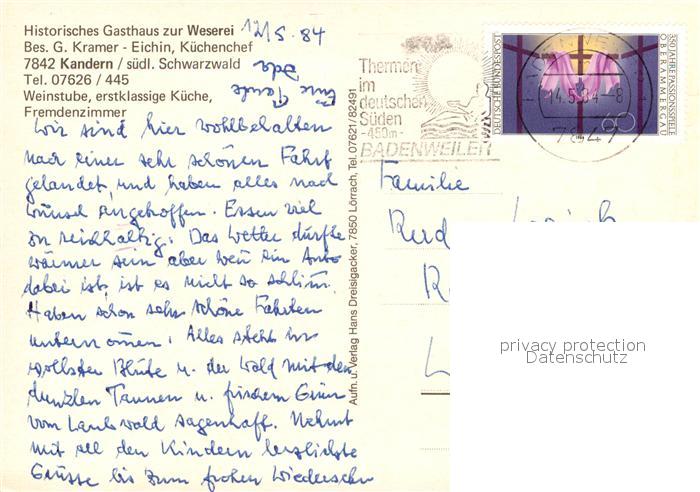 Historisches Gasthaus zur Weserei
Bes. G. Kramer - Eichin, Küchenchef
7842 Kandern / südl. Schwarzwald
Tel. 07626 / 445
Weinstube, erstklassige Küche,
Fremdenzimmer
12/5.84
Wir sind hier wohlbehalten
nach einer sehr schönen Fahrt
gelandet, und haben alles nach
Wunsch angetroffen. Essen viel
zu reichhaltig. Das Wetter dürfte
wärmer sein aber wen ein Auto
dabei ist, ist es nicht so schlim.
Haben schon sehr schöne Fahrten
unternomen. Alles steht in
vollster Blüte u. der Wald mit den
dunklen Tannen u. frischem Grün
vom Laubwald sagenhaft. Nehmt
mit all den Kindern herzlichste
Grüsse bis zum frohen Wiedersehn
Eure Tante
Aufn. u. Verlag Hans Dreisigacker, 7850 Lörrach, Tel. 07621/82491
Thermen
im
deutschen
Süden
-450m-
BADENWEILER
14.5.84-8
7847
DEUTSCHE BUNDESPOST
60
350 JAHRE PASSIONSSPIELE
OBERAMMERGAU
Familie
privacy protection
Datenschutz